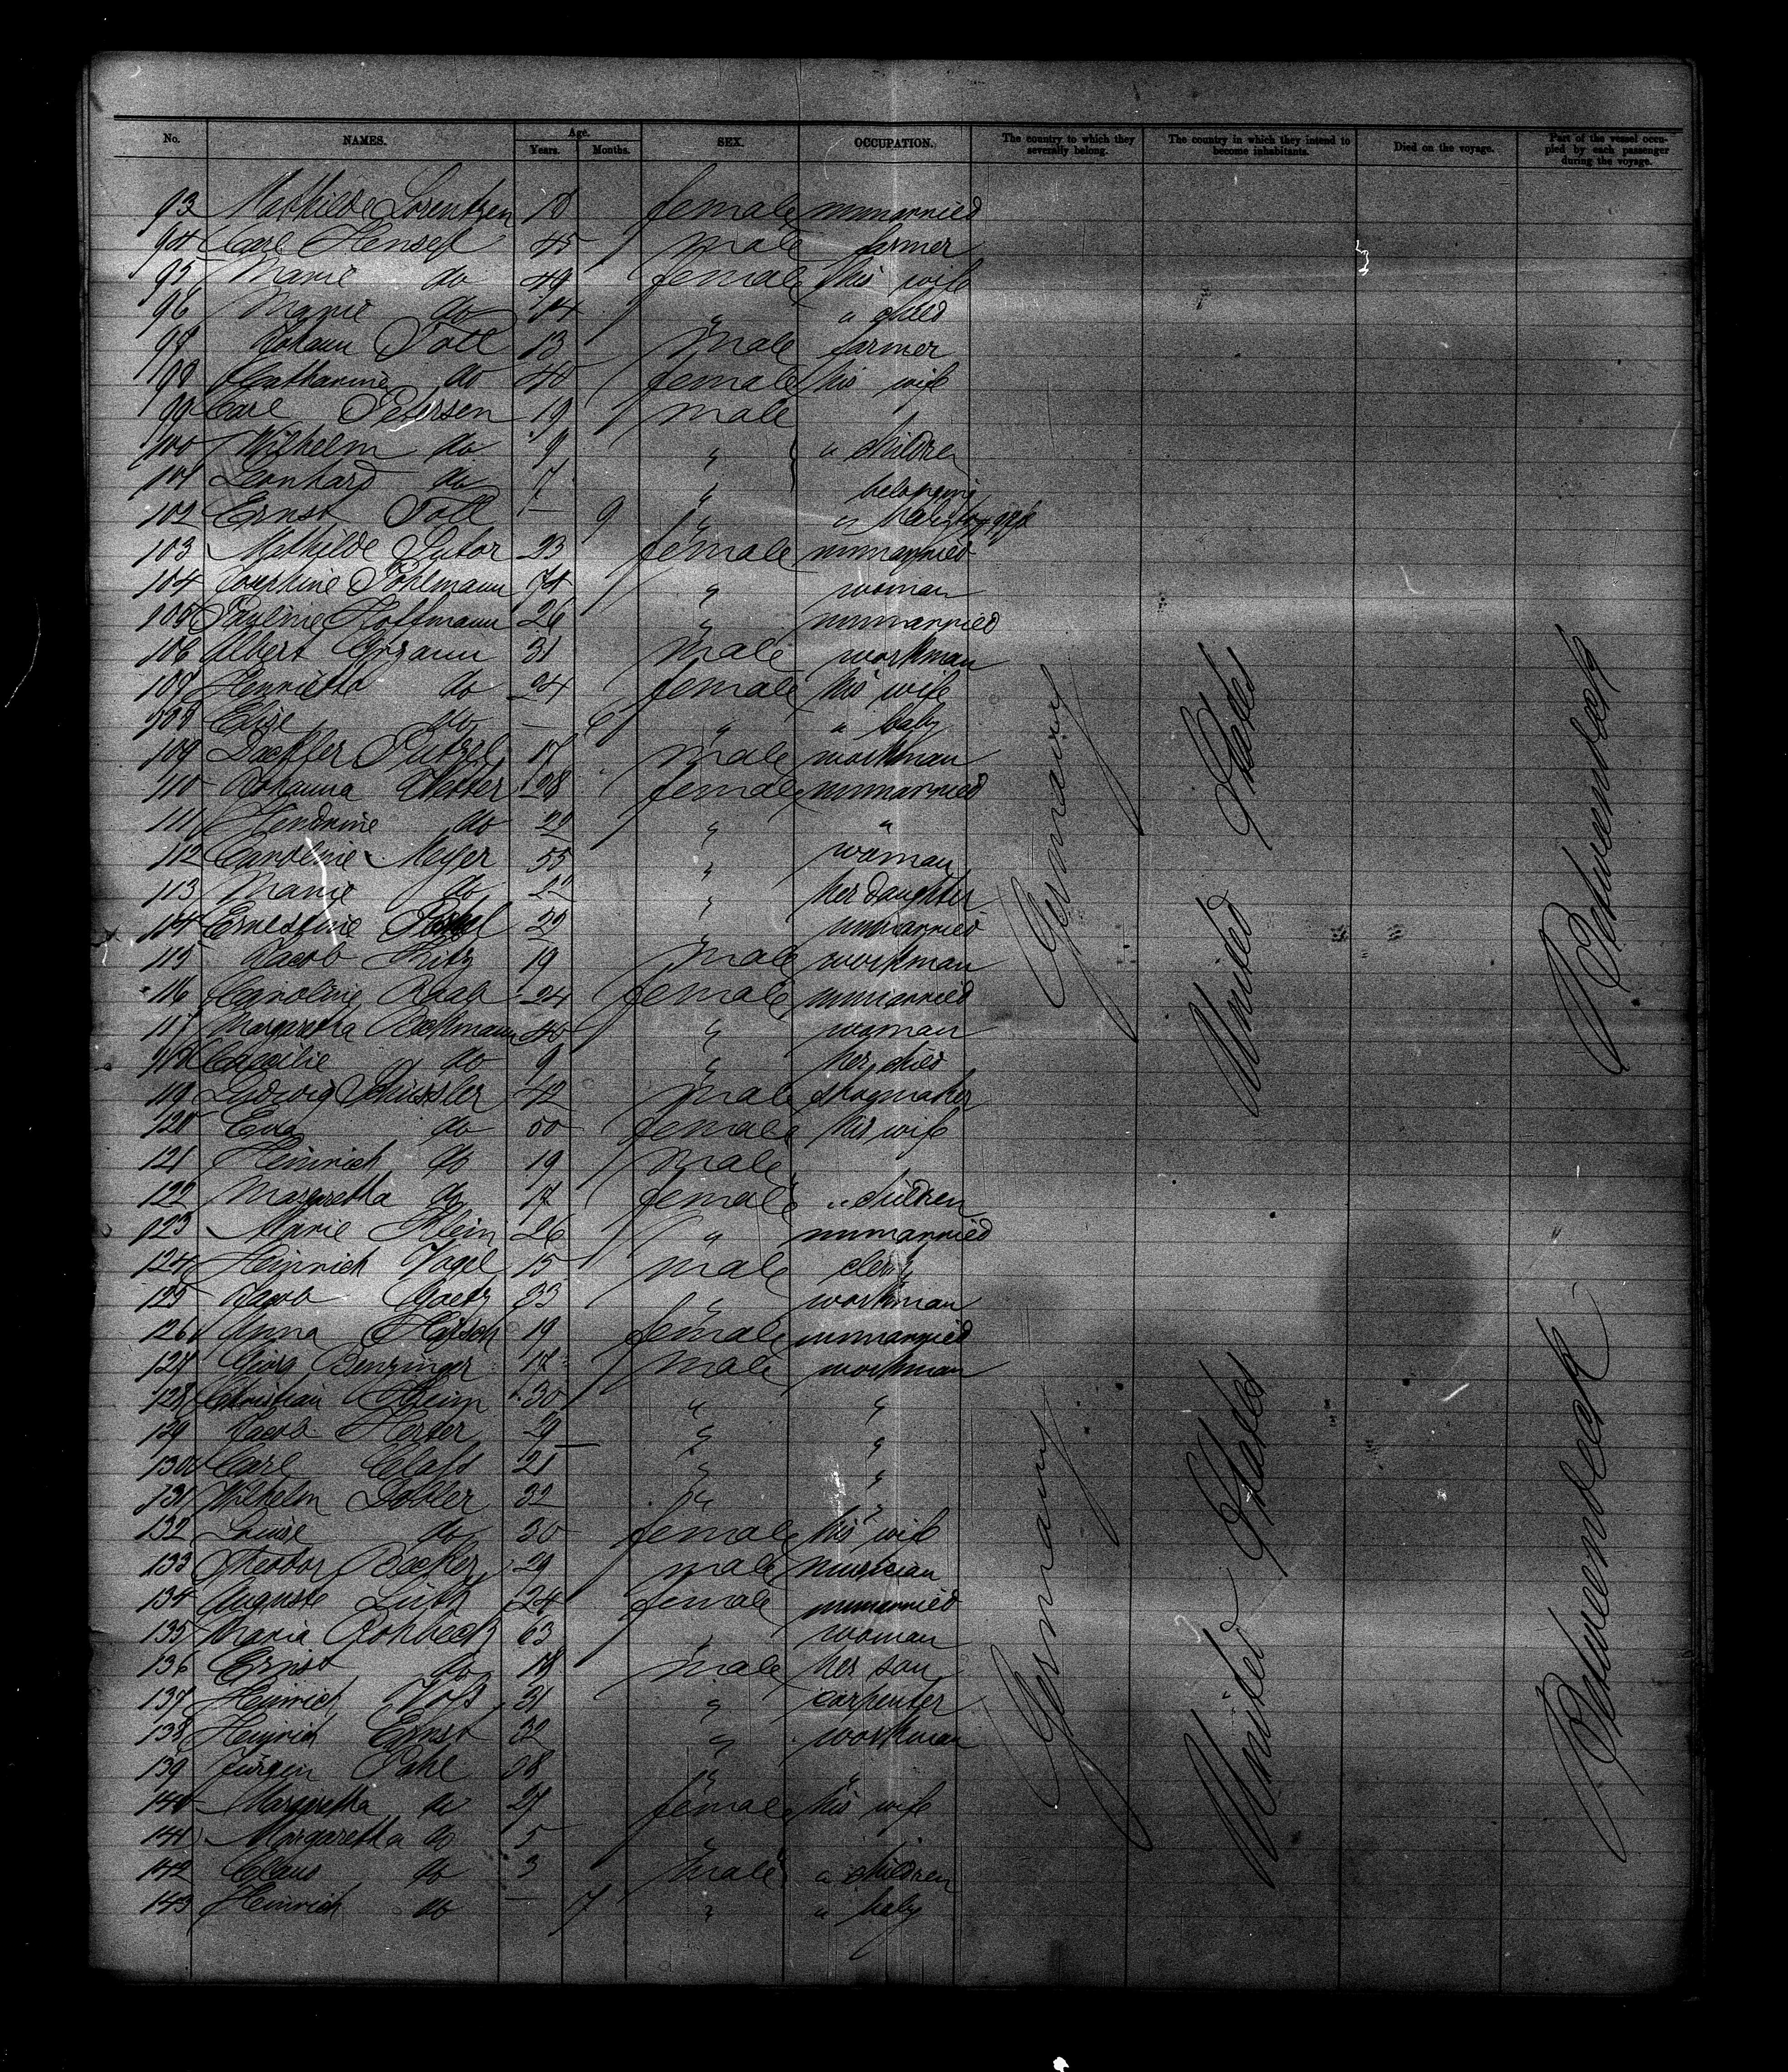 No. NAMES. Age. Years. Months. SEX. OCCUPATION. The country to which they severally belong. The country in which they intend to become inhabitants. Died on the voyage. Part of the vessel occupied by each passenger during the voyage.
93 Mathilde Lorentzen 18 female unmarried
94 Carl Hensel 45 male farmer
95 Marie do 49 female his wife
96 Marie do 14 " " child
97 Johann Toll male farmer
98 Catharine do 40 female his wife
99 Carl Petersen 19 male
100 Wilhelm do 9 " " children
101 Leonhard do 7 " belonging
102 Ernst Toll — 9 " " baby to 97/98
103 Mathilde Sutor 23 female unmarried
104 Josephine Pohlmann 74 " woman
105 Pauline Hoffmann 26 " unmarried
106 Albert 31 male workman
107 Henriette do 24 female his wife
108 Elise do — 6 " " baby
109 17 male workman
110 Johanna 28 female unmarried
111 Hendrine do 22 " "
112 Caroline Meyer 55 " woman
113 Marie do 22 " her daughter
114 Ernestine 22 " unmarried
115 Jacob Fritz 19 male workman
116 Caroline Raab 24 female unmarried
117 Margaretha Beckmann 40 " woman
118 Caecilie do 9 " her child
119 Ludwig Schüssler 42 male shoemaker
120 Eva do 50 female his wife
121 Heinrich do 19 male
122 Margaretha do 17 female " children
123 Marie Klein 26 " unmarried
124 Heinrich Vogel 15 male clerk
125 Jacob Goetz 33 " workman
126 Anna 19 female unmarried
127 Georg Benzinger 17 male workman
128 Christian 30 " "
129 Jacob Herter 29 " "
130 Carl Class 21 " "
131 Wilhelm Dobler 32 " "
132 Louise do 30 female his wife
133 Theodor Becker 29 male musician
134 Auguste Lüth 24 female unmarried
135 Maria Rohbeck 63 " woman
136 Ernst do 18 male her son
137 Heinrich Voss 31 " carpenter
138 Heinrich Ernst 32 " workman
139 Jürgen Pahl 38 " "
140 Margaretha do 27 female his wife
141 Margaretha do 5 "
142 Claus do 3 male " children
143 Heinrich do — 7 " " baby
Germany United States Betweendeck
Germany United States Betweendeck